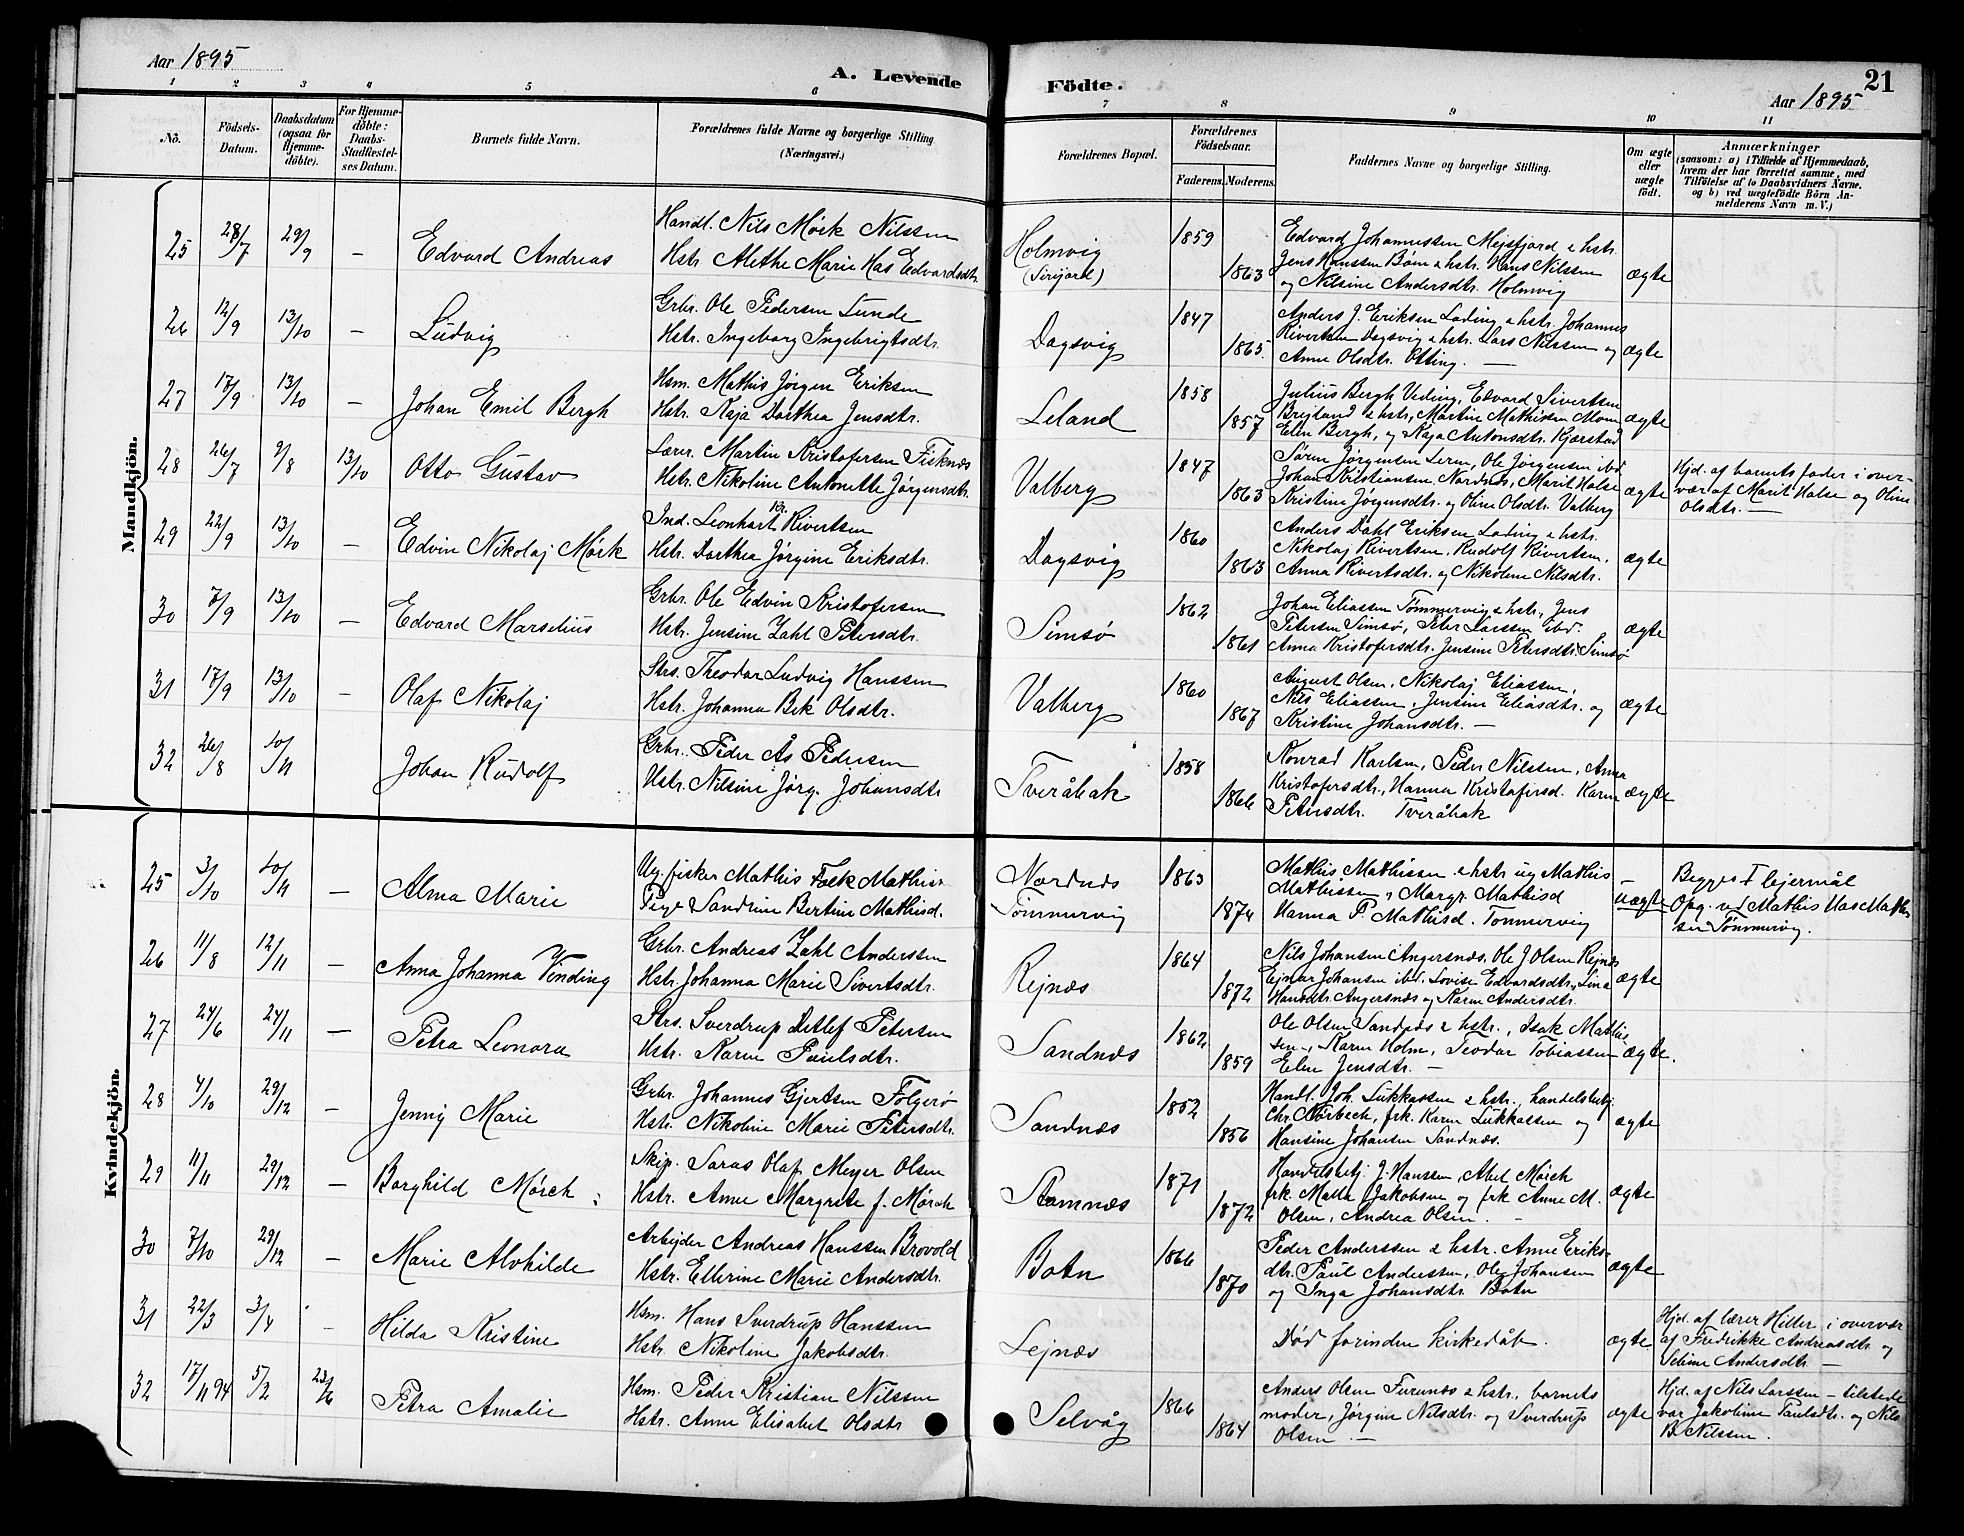 Aar 1895
A. Levende Födte.
21
Aar 1895
1 2 3 4 5 6 7 8 9 10 11
Nö.
Födsels-Datum.
Daabsdatum (ogsaa for Hjemme-döbte).
For Hjemme-döbte: Daabs-Stadfæstel-ses Datum.
Barnets fulde Navn.
Forældrenes fulde Navne og borgerlige Stilling (Næringsvei.)
Forældrenes Bopæl.
Forældrenes Födselsaar.
Faderens. Moderens.
Faddernes Navne og borgerlige Stilling.
Om ægte eller uægte födt.
Anmærkninger
(saasom: a) i Tilfælde af Hjemmedaab,
hvem der har forrettet samme, med
Tilföielse af to Daabsvidners Navne,
og b) ved uægtefödte Börn An-
melderens Navn m. V.)
Mandkjön.
25 28/7 29/9 — Edvard Andreas
Handl. Nils Mørk Nilssen
Hstr Alethe Marie Has Edvardsdtr.
Holmvig
(Sirijord)
1859 1863
Edvard Johannessen Mejsfjord & hstr.
Jens Hanssen Bøm & hstr. Hans Nilssen
og Nilsine Andersdtr. Holmvig
ægte
26 12/9 13/10 — Ludvig
Grbr. Ole Pedersen Lunde
Hstr. Ingeborg Ingebrigtsdtr.
Dagsvig
1847 1865.
Anders J. Eriksen Lading & hstr. Johannes
Rivertsen Dagsvig & hstr. Lars Nilssen og
Anne Olsdtr. Otting. —
ægte
27 17/9 13/10 — Johan Emil Bergh
Hsm. Mathis Jørgen Eriksen
Hstr. Kaja Dorthea Jensdtr.
Leland
1858 1857
Julius Bergh Veding, Edvard Sivertsen
Brejland & hstr, Martin Mathissen Moen
Elen Bergh, og Kaja Antonsdtr. Kjærstad
ægte
28 26/7 9/8 13/10 Otto Gustav
Lærer. Martin Kristofersen Fisknæs
Hstr. Nikoline Antonette Jørgensdtr.
Valberg
1847 1863
Søren Jørgensen Lerm, Ole Jørgensen ibd
Johan Kristiansen Nordnæs, Marit Halse
Kristine Jørgensdtr. og Oline Olsdtr. Valberg
ægte
Hjd. af barnets fader i over-
vær af Marit Halse og Oline
Olsdtr. —
29 22/9 13/10 — Edvin Nikolaj Mørk
Ind. Leonhart Kr. Rivertsen
Hstr. Dorthea Jørgine Eriksdtr.
Dagsvig
1860 1863
Anders Dahl Eriksen Lading & hstr.
Nikolaj Rivertsen, Rudolf Rivertsen,
Anna Rivertsdtr. og Nikoline Nilsdtr.
ægte
30 7/9 13/10 — Edvard Marselius
Grbr. Ole Edvin Kristofersen
Hstr. Jensine Zahl Petersdtr.
Simsø
1862 1861
Johan Eliassen Tømmervig & hstr, Jens
Petersen Simsø, Peter Larssen ibd.
Anna Kristofersdtr. Jensine Petersdtr. Simsø
ægte
31 17/9 13/10 — Olaf Nikolaj
Strs. Theodor Ludvig Hanssen
Hstr. Johanna Bek Olsdtr.
Valberg
1860 1867
August Olsen, Nikolaj Eliassen,
Nils Eliassen, Jensine Eliasdtr. og
Kristine Johansdtr. —
ægte
32 26/8 10/11 Johan Rudolf
Grbr. Peder Ås Pedersen
Hstr. Nilsine Jørg. Johansdtr
Tveråbak
1858 1866
Konrad Karlsen, Peder Nilssen, Anna
Kristofersdtr., Hanna Kristofersd. Karen
Petersdtr. Tveråbak
ægte
Kvindekjön.
25 3/10 10/11 — Alma Marie
Ug. fisker Mathis Falk Mathis.
Pige Sandrine Bertine Mathisd.
Nordnæs
Tømmervig
1863 1874
Mathis Mathissen & hstr ug Mathis
Mathissen, Margr. Mathisd
Hanna P. Mathisd. Tommervig
uægte
Begges I lejermål
Opg. ved Mathis Has Mathis
sen Tømmervig.
26 11/8 12/11 — Anna Johanna Vinding
Grbr. Andreas Zahl Anderssen
Hstr. Johanna Marie Sivertsdtr.
Rejnæs
1864 1872
Nils Johansen Angersnæs, Ole J Olsen Rejnæs
Ejnar Johansen ibd. Lovise Edvardsdtr, Lina
Hansdtr. Angersnæs og Karen Andersdtr.
ægte
27 24/6 24/11 — Petra Leonora
Strs. Sverdrup Detlef Petersen
Hstr. Karen Paulsdtr.
Sandnæs
1862 1859
Ole Olsen Sandnæs & hstr., Isak Mathis
sen, Karen Holm, Teodor Tobiassen
Elen Jensdtr. —
ægte.
28 4/10 29/12 — Jenny Marie
Grbr. Johannes Gjertsen Følgerø
Hstr. Nikoline Marie Petersdtr.
Sandnæs
1852 1856
Handl. Joh. Lukkassen & hstr., handelsbetj.
Chr. Nørbech, frk. Karen Lukkassen og
Hansine Johansen Sandnæs.
ægte
29 11/11 29/12 — Borghild Mørch
Skip. Saras Olaf Meyer Olsen
Hstr. Anne Margrete f. Mørch
Stamnæs
1871 1872
Handelsbetj. J. Hanssen, Abel Mørch
frk Malla Jakobsen og frk Anne M.
Olsen, Andrea Olsen. —
ægte
30 7/10 29/12 — Marie Alvhilde
Arbejder Andreas Hanssen Brovold
Hstr. Ellerine Marie Andersdtr.
Botn
1866 1870
Peder Anderssen & hstr. Anne Eriks-
dtr. Paul Anderssen, Ole Johansen
og Inga Johansdtr. Botn
ægte
31 22/3 3/4 — Hilda Kristine
Hsm. Hans Sverdrup Hanssen
Hstr. Nikoline Jakobsdtr.
Lejnæs
Død forinden kirkedåb.
ægte
Hjd. af lærer Hiller i overvær
af Fredrikke Andreasdtr og
Seline Andersdtr —
32 17/11 94 5/2 23/6 Petra Amalie
Hsm. Peder Kristian Nilssen
Hstr. Anne Elisabet Olsdtr
Selvåg
1866 1864
Anders Olsen Furunæs & hstr. barnets
moder, Jørgine Nilsdtr. og Sverdrup
Olsen —
ægte
Hjd. af Nils Larssen — tilstede
var Jakobine Paulsdtr. og Nils
B. Nilssen.